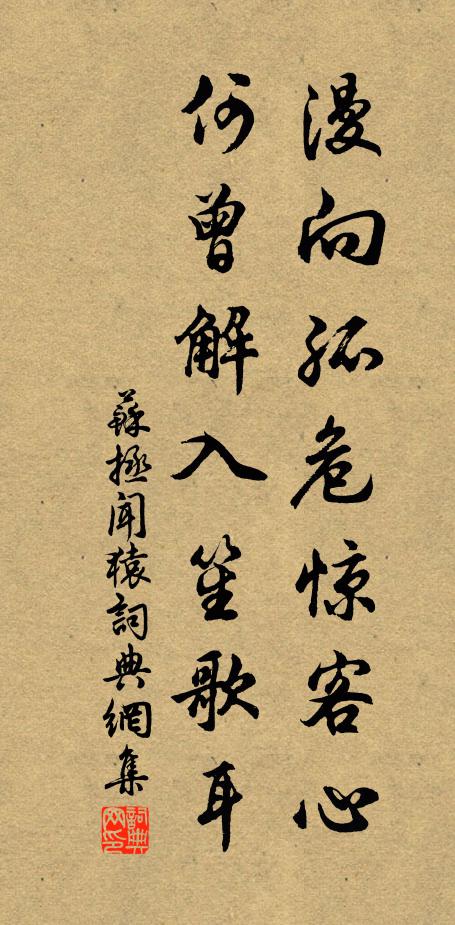 漫向孤危惊客心
何曾解入笙歌耳
蘇拯闻猿詞典網集
詞典网印